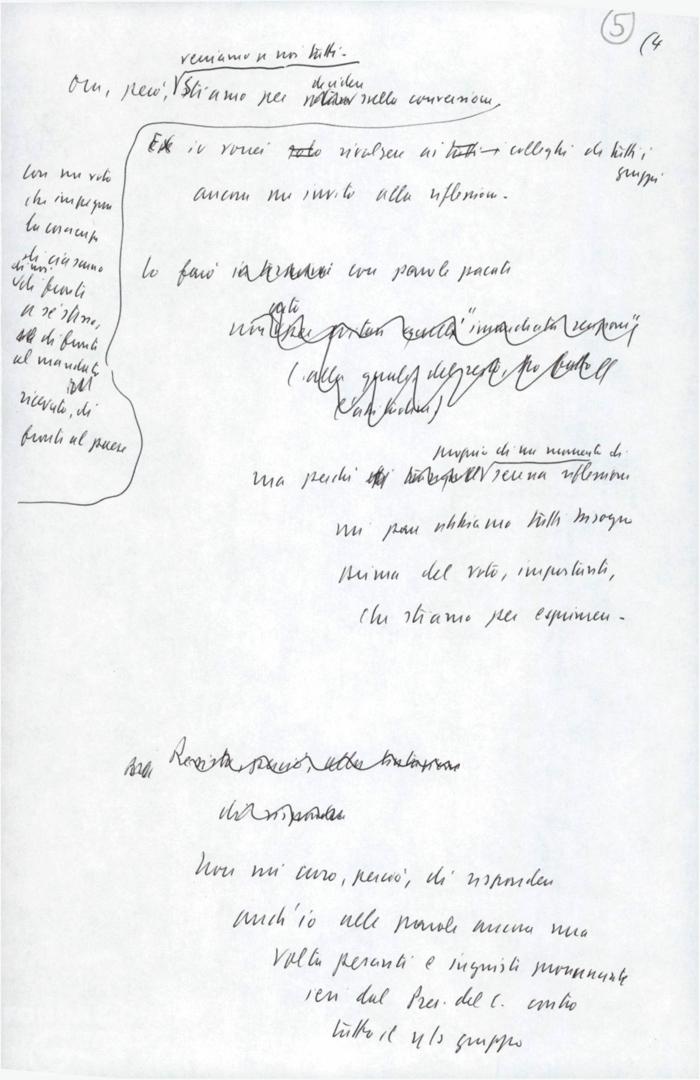 5
(4
veniamo a noi tutti.
Ora, però, stiamo per decidere sulla conversione,
E io vorrei solo rivolgere ai tutti i colleghi di tutti i
gruppi
ancora un invito alla riflessione.
con un voto
che impegna
la coscienza
di ciascuno
di noi
di fronte
a sé stesso,
di fronte
al mandato
ricevuto, di
fronte al paese
Lo farò con parole pacate
non "immediata reazione"
(alla quale, del resto,
ma perché
proprio di un momento di
serena riflessione
mi pare abbiamo tutti bisogno
prima del voto, importante,
che stiamo per esprimere.
Resisto, perciò, alla tentazione
di rispondere
Non mi curo, perciò, di rispondere
anch'io alle parole ancora una
volta pesanti e ingiuste pronunciate
ieri dal Pres. del C. contro
tutto il n/s gruppo